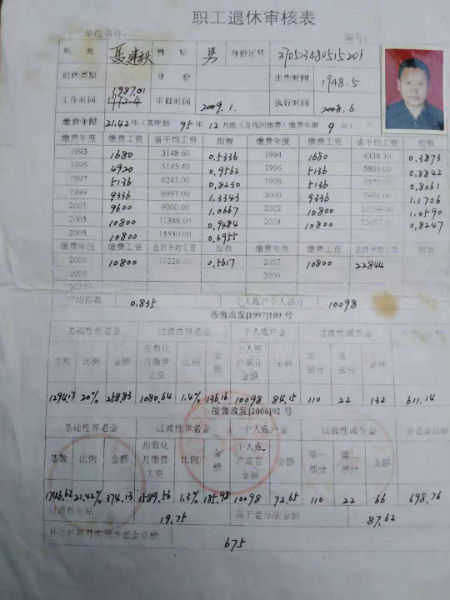 职工退休审核表
单位名称: 编号:
姓名 性别 男 身份证号
退休类别 身份 出生时间 1948.5
1987.01
工作时间 1972.4 审批时间 2009.1. 执行时间 2008.6
缴费年限 21.42年(其中到 95年12月底(含视同缴费)缴费年限 9年)
缴费年度 缴费工资 省平均工资 指数 缴费年度 缴费工资 省平均工资 指数
1993 1680 3148.60 0.5336 1994 1680 4338.10 0.3873
1995 4920 5145.40 0.9562 1996 5136 5809.00 0.8842
1997 5136 6241.00 0.8230 1998 5136 0.8061
1999 9336 6997.00 1.3343 2000 9336 7976.00 1.1706
2001 9600 9000.00 1.0667 2002 10800 1.0590
2003 10800 11388.00 0.9484 2004 10800 0.8247
2005 10800 15530.00 0.6955
缴费年度 缴费工资 指数 缴费年度 缴费工资 指数
2006 10800 19228.00 0.5617 2007 10800 22844
2008
平均指数 0.835 个人账户个人部分 10098
按鲁改发[1997]109号
基础性养老金 过渡性养老金 个人账户金 过渡性调节金
基数 比例 金额 指数化月缴费工资 比例 金额 个人账户储存金额 金额 第一部分 第二部分 金额
1294.17 20% 258.83 1080.64 1.4% 136.16 10098 84.15 110 22 132 611.14
按鲁改发[2006]92号
基础性养老金 过渡性养老金 个人账户金 过渡性调节金 养老金总额
基数 比例 金额 指数化月缴费工资 比例 金额 个人账户储存金额 金额 第一部分 第二部分 金额
1746.62 21.42% 374.13 1589.56 1.3% 185.98 10098 72.65 110 22 66 698.76
过渡性补贴 19.75 高于老办法金额 87.62
675